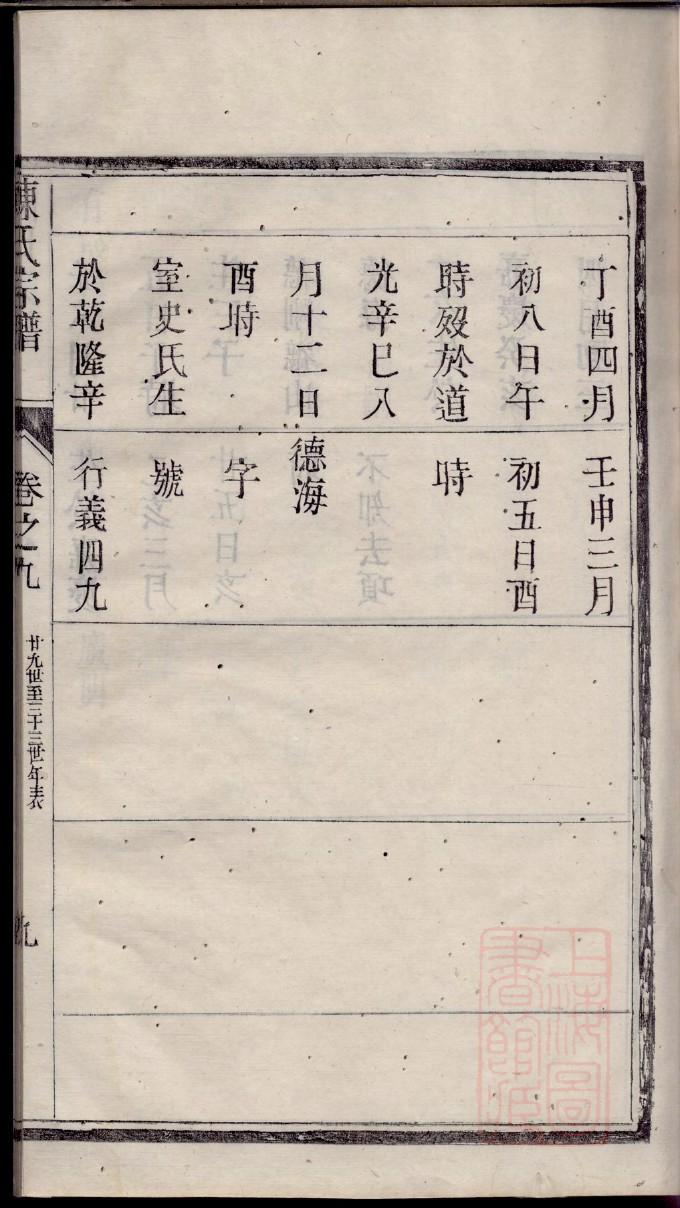 丁酉四月
初八日午
時殁於道
光辛巳八
月十二日
酉時
室史氏生
於乾隆辛
壬申三月
初五日酉
時
德海
字
號
行義四九
陳氏宗譜
卷之九
廿九世至三十三世年表
九
上海圖書館藏